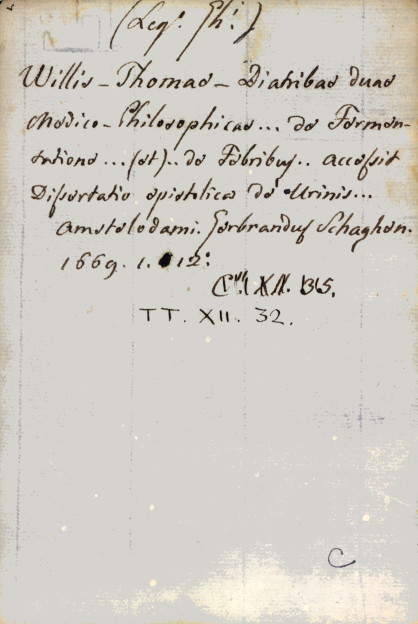 (Leg. Ph.)
Willis - Thomas - Diatribae duae
Medico-Philosophicae... de Fermen-
tatione... (et).. de Febribus.. accessit
Dissertatio epistolica de Urinis...
Amstelodami. Gerbrandus Schaghen.
1669. 1. 12:
XII. 35.
TT. XII. 32.
C